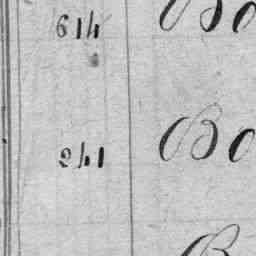 614 Bo
241 Bo
B